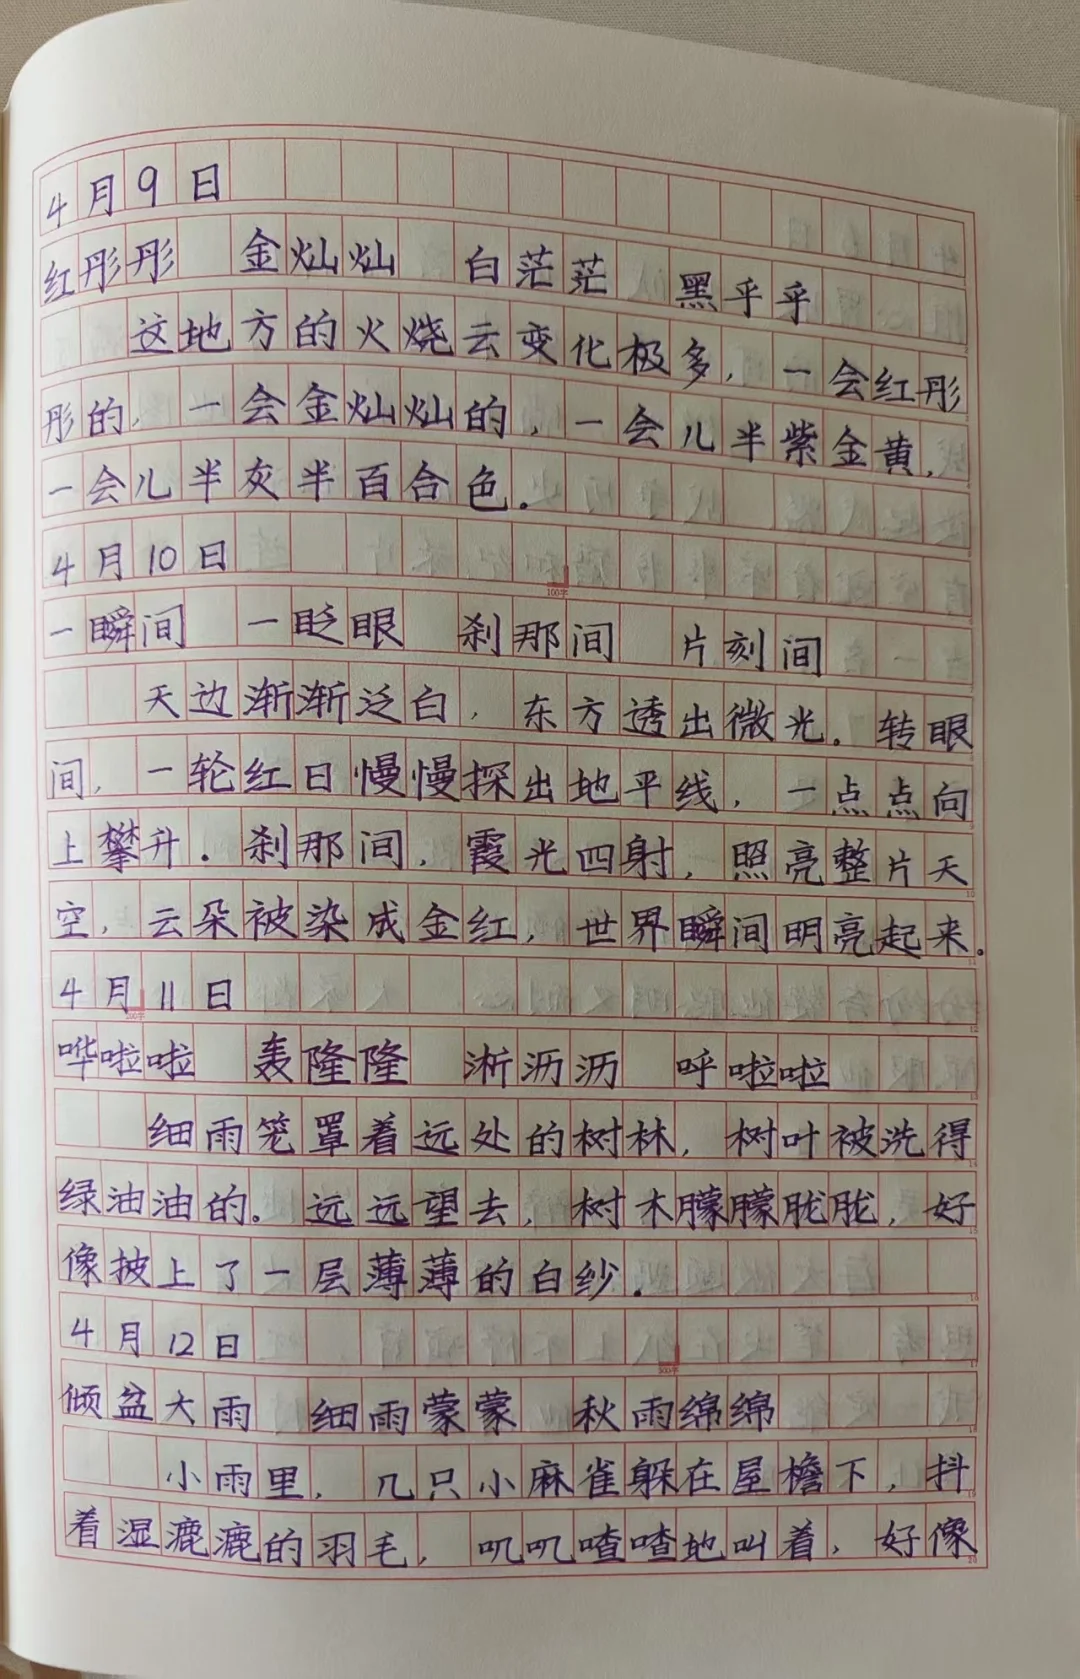 4月9日
红彤彤 金灿灿 白茫茫 黑乎乎
这地方的火烧云变化极多，一会红彤
彤的，一会金灿灿的，一会儿半紫金黄，
一会儿半灰半百合色。
4月10日
100字
一瞬间 一眨眼 刹那间 片刻间
天边渐渐泛白，东方透出微光。转眼
间，一轮红日慢慢探出地平线，一点点向
上攀升。刹那间，霞光四射，照亮整片天
空，云朵被染成金红，世界瞬间明亮起来。
4月11日
200字
哗啦啦 轰隆隆 淅沥沥 呼啦啦
细雨笼罩着远处的树林，树叶被洗得
绿油油的。远远望去，树木朦朦胧胧，好
像披上了一层薄薄的白纱。
4月12日
300字
倾盆大雨 细雨蒙蒙 秋雨绵绵
小雨里，几只小麻雀躲在屋檐下，抖
着湿漉漉的羽毛，叽叽喳喳地叫着，好像